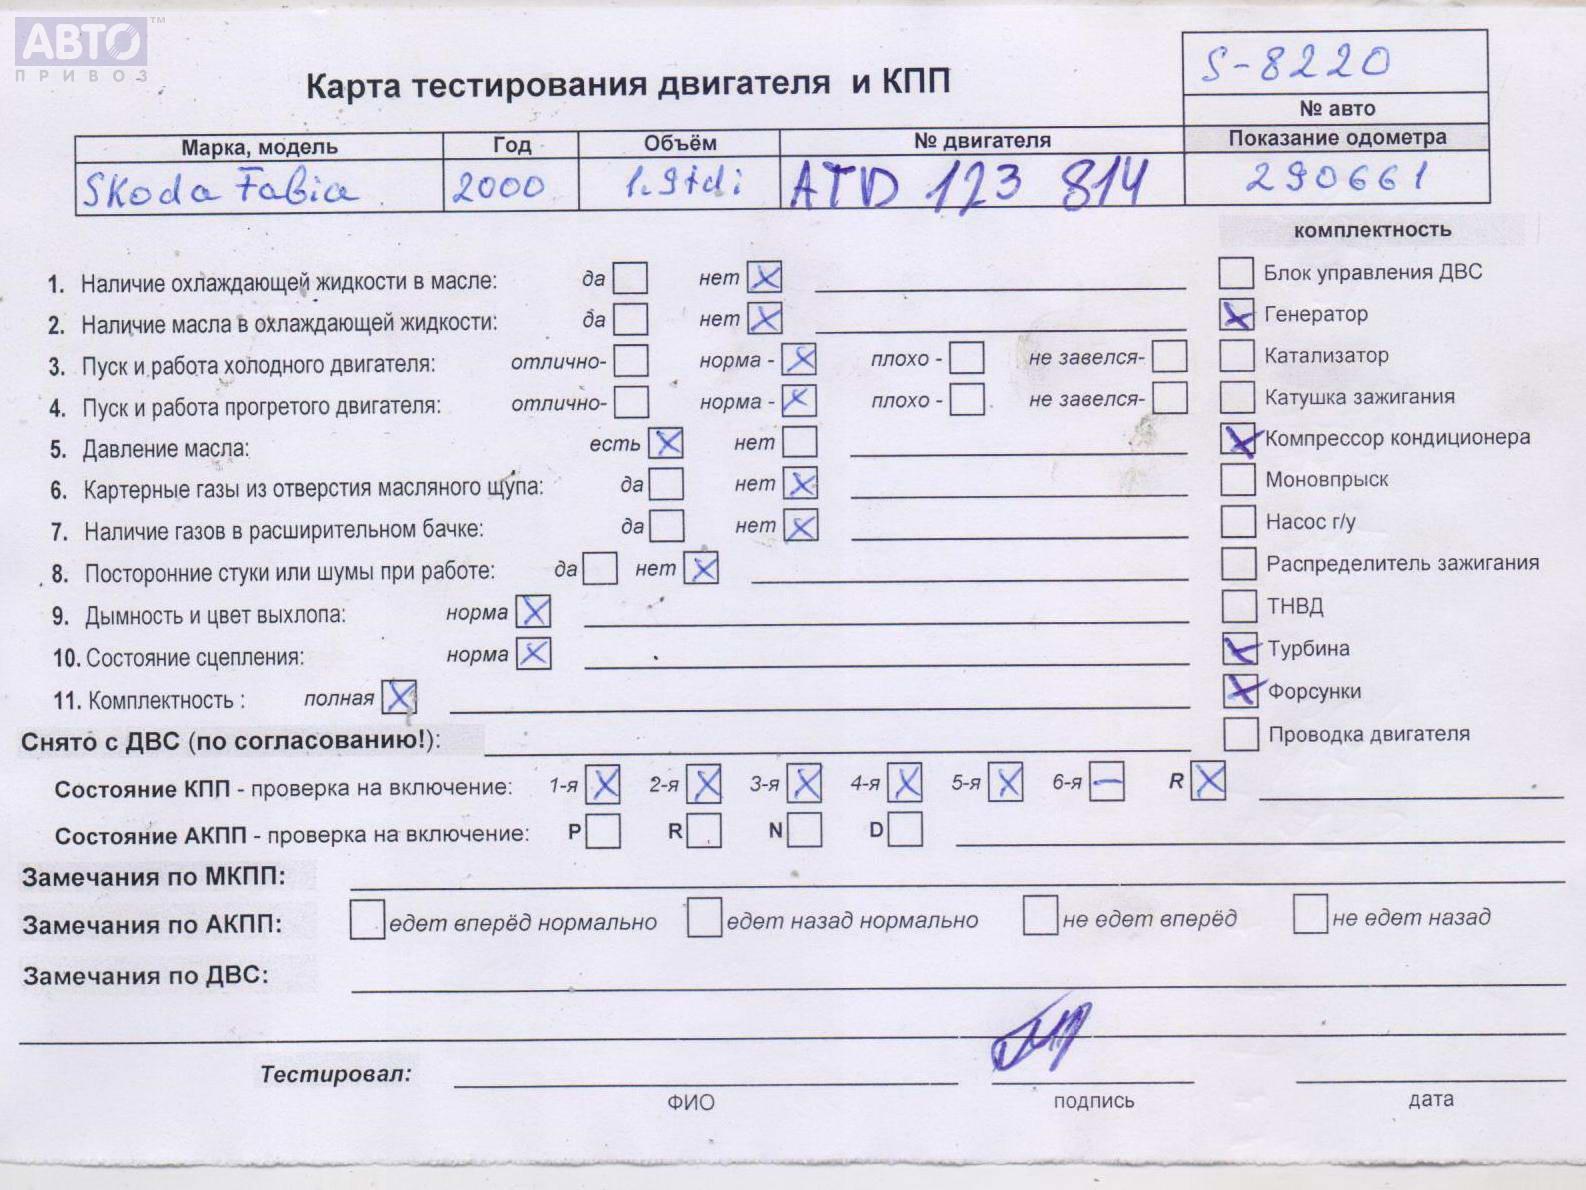 АВТО™
ПРИВОЗ
S-8220
Карта тестирования двигателя и КПП
№ авто
Марка, модель Год Объём № двигателя Показание одометра
Skoda Fabia 2000 1.9tdi ATD 123 814 290661
комплектность
1. Наличие охлаждающей жидкости в масле: да нет X
Блок управления ДВС
2. Наличие масла в охлаждающей жидкости: да нет X
X Генератор
3. Пуск и работа холодного двигателя: отлично- норма - X плохо - не завелся-
Катализатор
4. Пуск и работа прогретого двигателя: отлично- норма - X плохо - не завелся-
Катушка зажигания
5. Давление масла: есть X нет
X Компрессор кондиционера
6. Картерные газы из отверстия масляного щупа: да нет X
Моновпрыск
7. Наличие газов в расширительном бачке: да нет X
Насос г/у
8. Посторонние стуки или шумы при работе: да нет X
Распределитель зажигания
9. Дымность и цвет выхлопа: норма X
ТНВД
10. Состояние сцепления: норма X
X Турбина
11. Комплектность : полная X
X Форсунки
Снято с ДВС (по согласованию!):
Проводка двигателя
Состояние КПП - проверка на включение: 1-я X 2-я X 3-я X 4-я X 5-я X 6-я — R X
Состояние АКПП - проверка на включение: P R N D
Замечания по МКПП:
Замечания по АКПП: едет вперёд нормально едет назад нормально не едет вперёд не едет назад
Замечания по ДВС:
Тестировал:
ФИО подпись дата